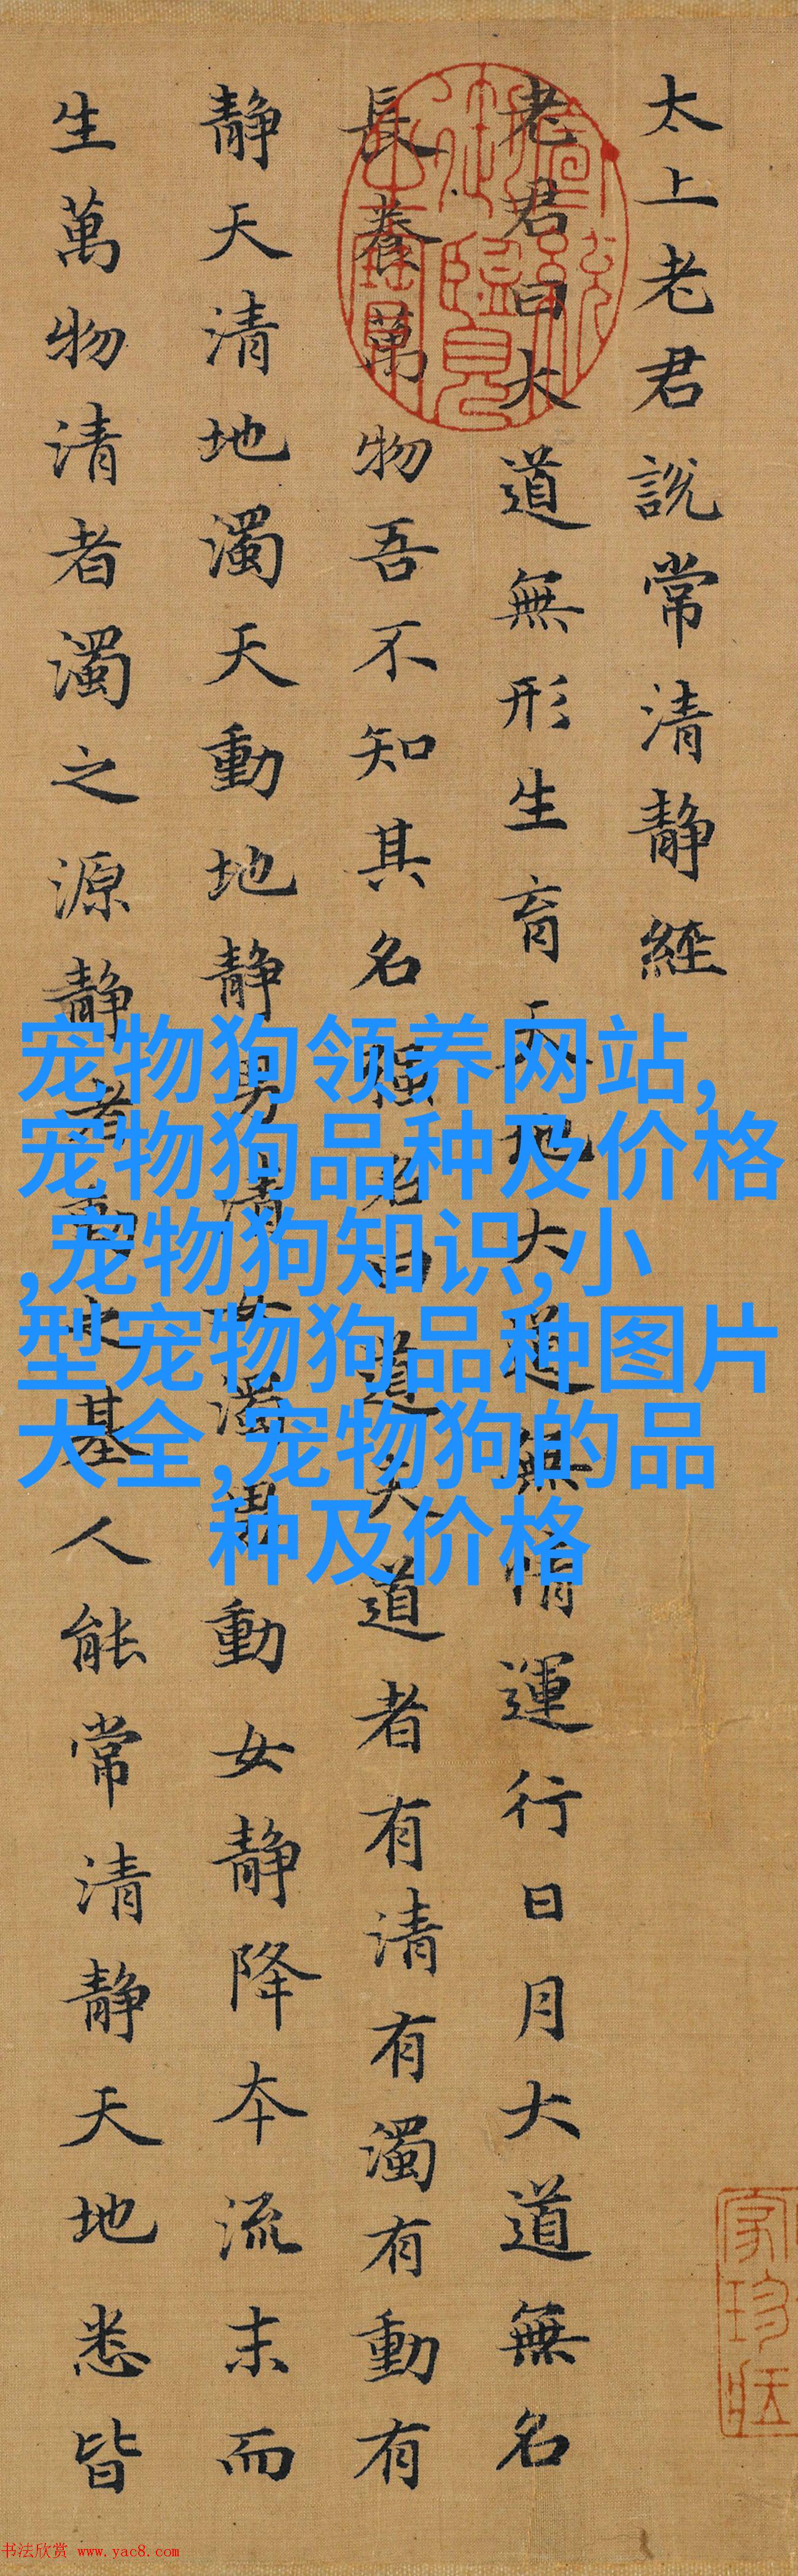 太上老君說常清靜經
老君曰大道無形生育天地大道無情運行日月大道無名
長養萬物吾不知其名強名曰道夫道者有清有濁有動有
靜天清地濁天動地靜男清女濁男動女靜降本流末而
生萬物清者濁之源靜者動之基人能常清靜天地悉皆
宠物狗领养网站,
宠物狗品种及价格
,宠物狗知识,小
型宠物狗品种图片
大全,宠物狗的品
种及价格
家珍
书法欣赏 www.yac8.com